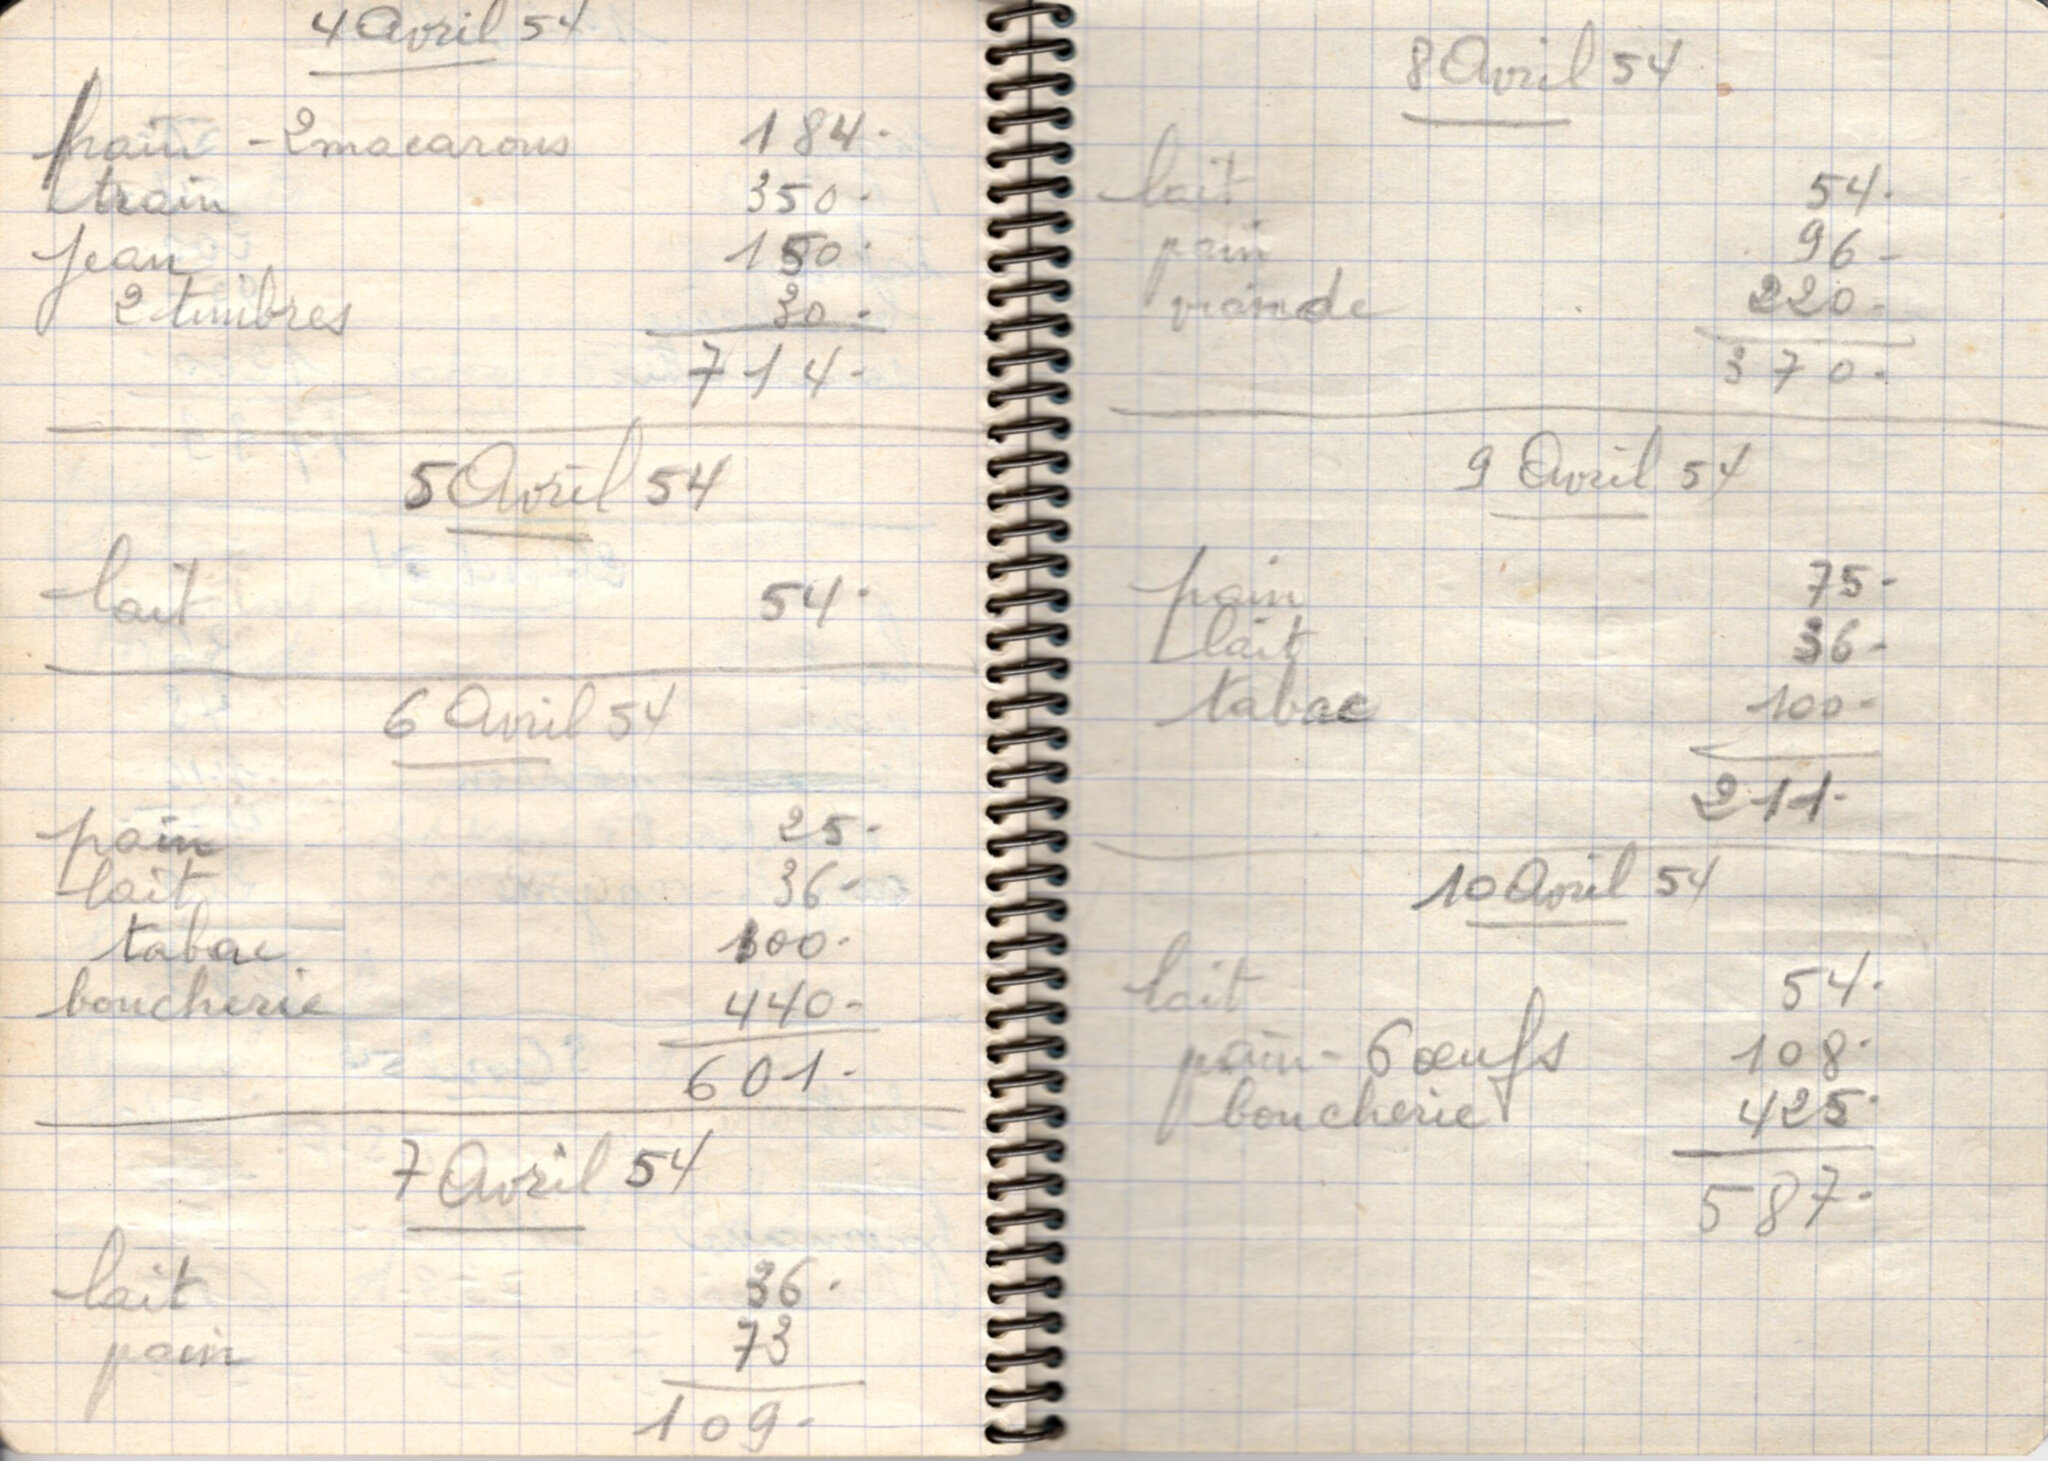 4 Avril 54
pain - 2 macarons 184.
train 350.
Jean 150.
2 timbres 30.
714.
5 Avril 54
lait 54.
6 Avril 54
pain 25.
lait 36.
tabac 100.
boucherie 440.
601.
7 Avril 54
lait 36.
pain 73
109.
8 Avril 54
lait 54.
pain 96-
viande 220.
370.
9 Avril 54
pain 75-
lait 36-
tabac 100-
211.
10 Avril 54
lait 54.
pain - 6 œufs 108.
boucherie 425.
587.